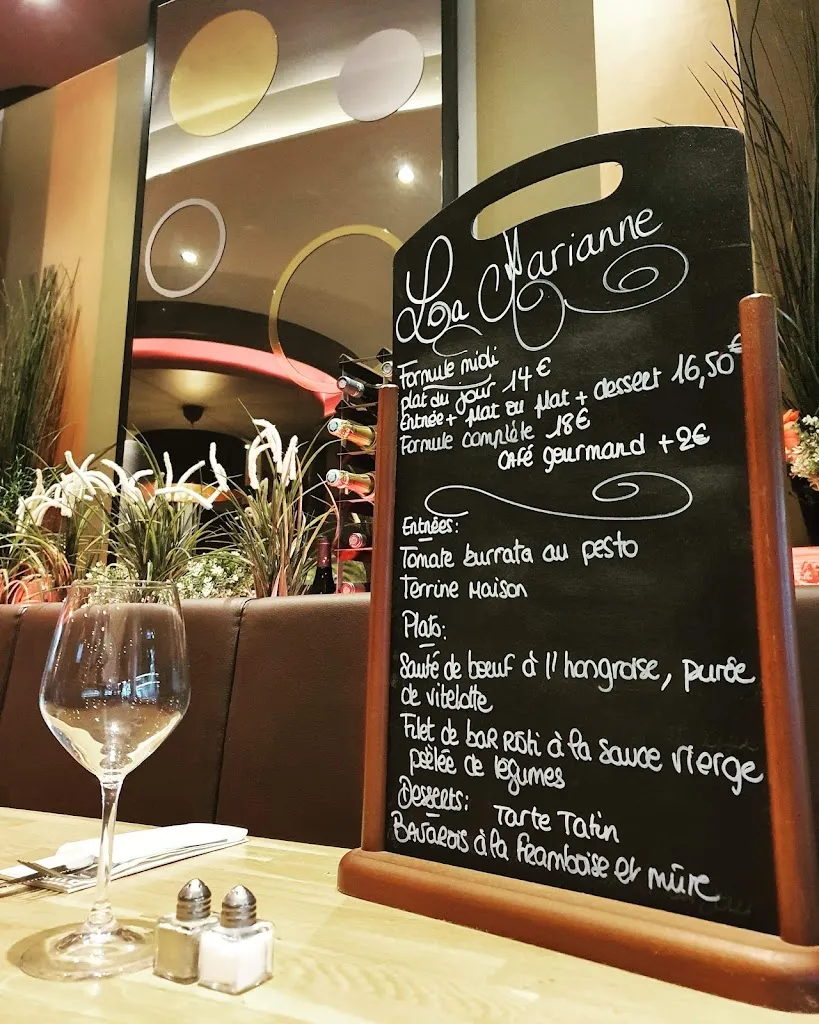 La Marianne
Formule midi
plat du jour 14€
Entrée + plat ou plat + dessert 16,50€
Formule complète 18€
Café gourmand +2€
Entrées:
Tomate burrata au pesto
Terrine Maison
Plats:
Sauté de bœuf à l'hongroise, purée
de vitelotte
Filet de bar rôti à la sauce vierge
poêlée de légumes
Desserts: Tarte Tatin
Bavarois à la framboise et mûre